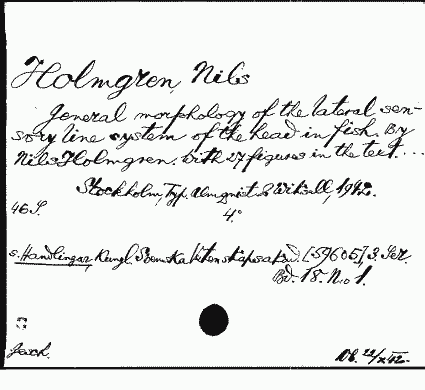 Holmgren, Nils
General morphology of the lateral sen-
sory line system of the head in fish. By
Nils Holmgren. With 27 figures in the text....
Stockholm, Typ. Almqvist & Wiksell, 1942.
46 S. 4°
s. Handlingar, Kungl. Svenska Vetenskapsakad. [59605] 3. Ser.
Bd. 18. No 1.